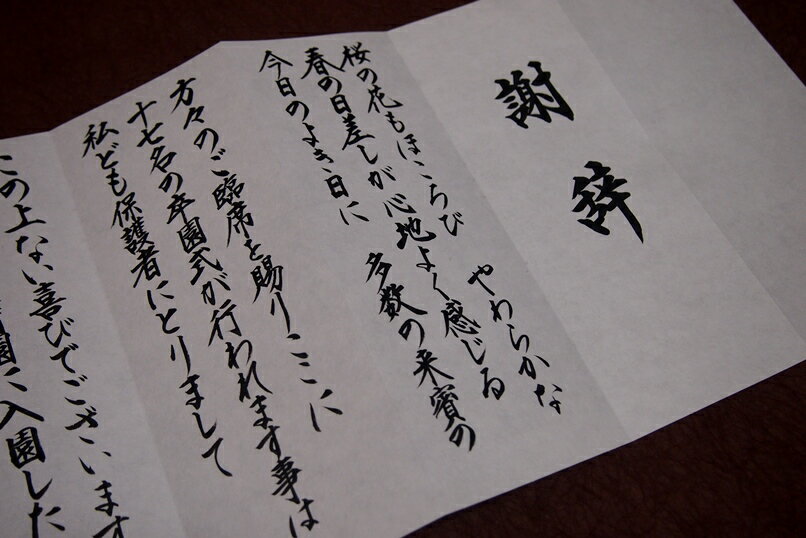 謝辞
桜の花もほころび　やわらかな
春の日差しが心地よく感じる
今日のよき日に　多数の来賓の
方々のご臨席を賜りここに
十七名の卒園式が行われます事は
私ども保護者にとりまして
この上ない喜びでございます
園に入園した